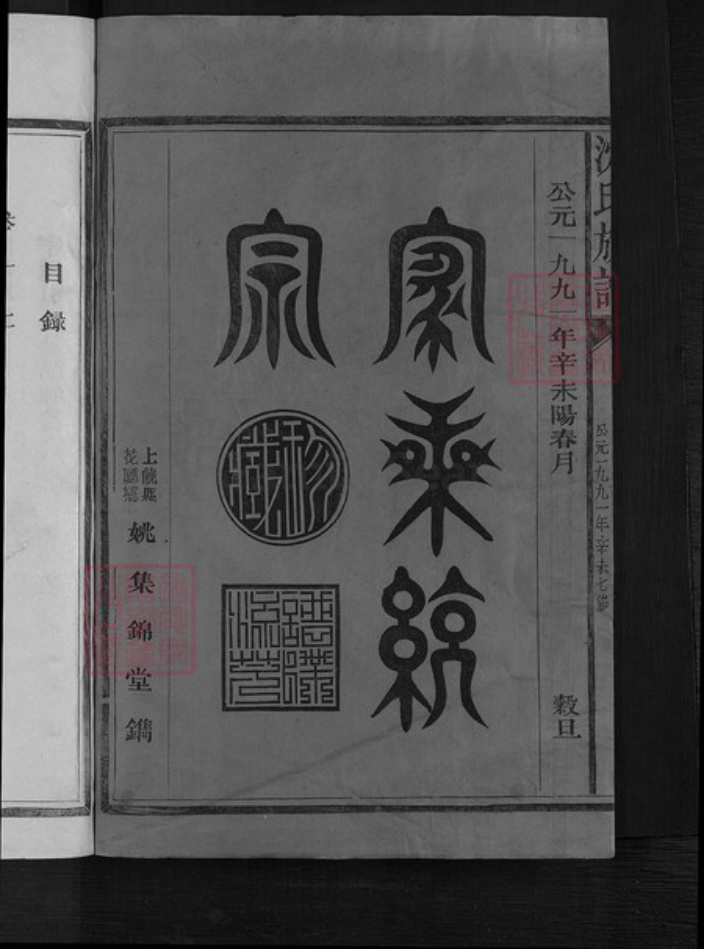 沈氏族譜
公元一九九一年辛未七修
公元一九九一年辛未陽春月 穀旦
家乘統
宗
珍藏
譜牒流芳
上饒縣
姚集錦堂鐫
目録